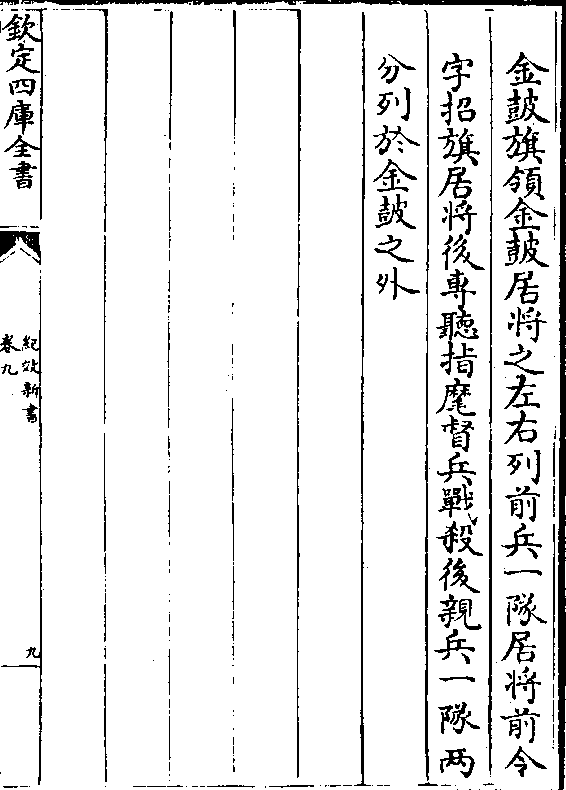 金鼓旗領金鼓居將之左右列前兵一隊居將前令
字招旗居將後専聽指麾督兵戰殺後親兵一隊兩
分列於金鼓之外
欽定四庫全書
紀效新書
卷九
九